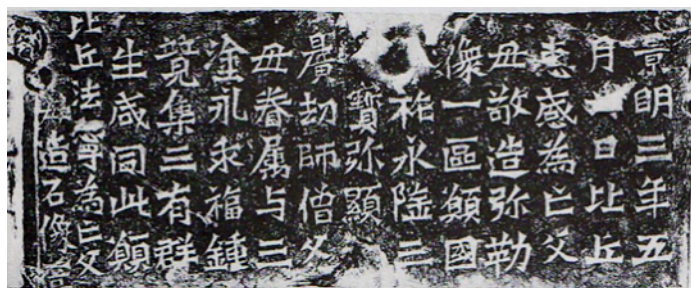 景明三年五
月日比丘
惠感為亡父
母敬造弥勒
像一區願國
祚永隆三
寶弥顯
曠劫師僧父
母眷属与三
塗永乖福鍾
竟集三有群
生咸同此願
比丘法為亡父
造石像